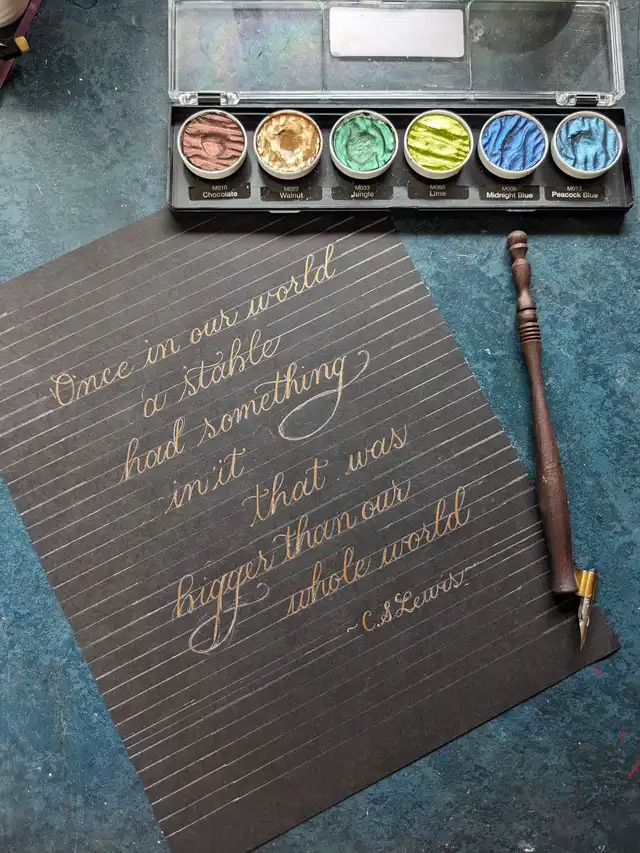 M010 M022 M033 M060 M008 M013
Chocolate Walnut Jungle Lime Midnight Blue Peacock Blue
Once in our world
a stable
had something
in it
that was
bigger than our
whole world
~C.S Lewis~